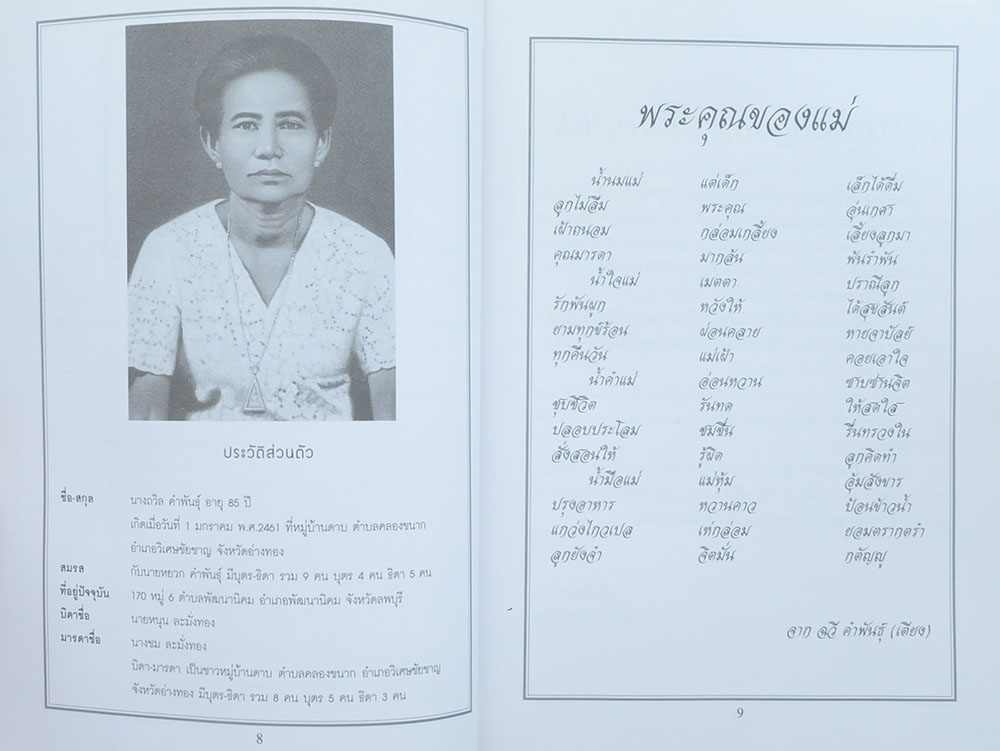 ประวัติส่วนตัว
ชื่อ-สกุล นางถวิล คำพันธุ์ อายุ 85 ปี
เกิดเมื่อวันที่ 1 มกราคม พ.ศ.2461 ที่หมู่บ้านดาบ ตำบลคลองขนาก
อำเภอวิเศษชัยชาญ จังหวัดอ่างทอง
สมรส กับนายหยวก คำพันธุ์ มีบุตร-ธิดา รวม 9 คน บุตร 4 คน ธิดา 5 คน
ที่อยู่ปัจจุบัน 170 หมู่ 6 ตำบลพัฒนานิคม อำเภอพัฒนานิคม จังหวัดลพบุรี
บิดาชื่อ นายหนุน ละมั่งทอง
มารดาชื่อ นางชม ละมั่งทอง
บิดา-มารดา เป็นชาวหมู่บ้านดาบ ตำบลคลองขนาก อำเภอวิเศษชัยชาญ
จังหวัดอ่างทอง มีบุตร-ธิดา รวม 8 คน บุตร 5 คน ธิดา 3 คน
8
พระคุณของแม่
น้ำนมแม่ แต่เด็ก เล็กได้ดื่ม
ลูกไม่ลืม พระคุณ อุ่นเกศา
เฝ้าถนอม กล่อมเกลี้ยง เลี้ยงลูกมา
คุณมารดา มากล้น พ้นรำพัน
น้ำใจแม่ เมตตา ปราณีลูก
รักพันผูก หวังให้ ได้สุขสันต์
ยามทุกข์ร้อน ผ่อนคลาย หายจาบัลย์
ทุกคืนวัน แม่เฝ้า คอยเอาใจ
น้ำคำแม่ อ่อนหวาน ซาบซ่านจิต
ชุบชีวิต รันทด ให้สดใส
ปลอบประโลม ชมชื่น รื่นทรวงใน
สั่งสอนให้ รู้ผิด ลูกคิดทำ
น้ำมือแม่ แม่หุ้ม อุ้มสังขาร
ปรุงอาหาร หวานคาว ป้อนข้าวน้ำ
แกว่งไกวเปล เห่กล่อม ยอมตรากตรำ
ลูกยังจำ จิตมั่น กตัญญู
จาก ฉวี คำพันธุ์ (เตียง)
9